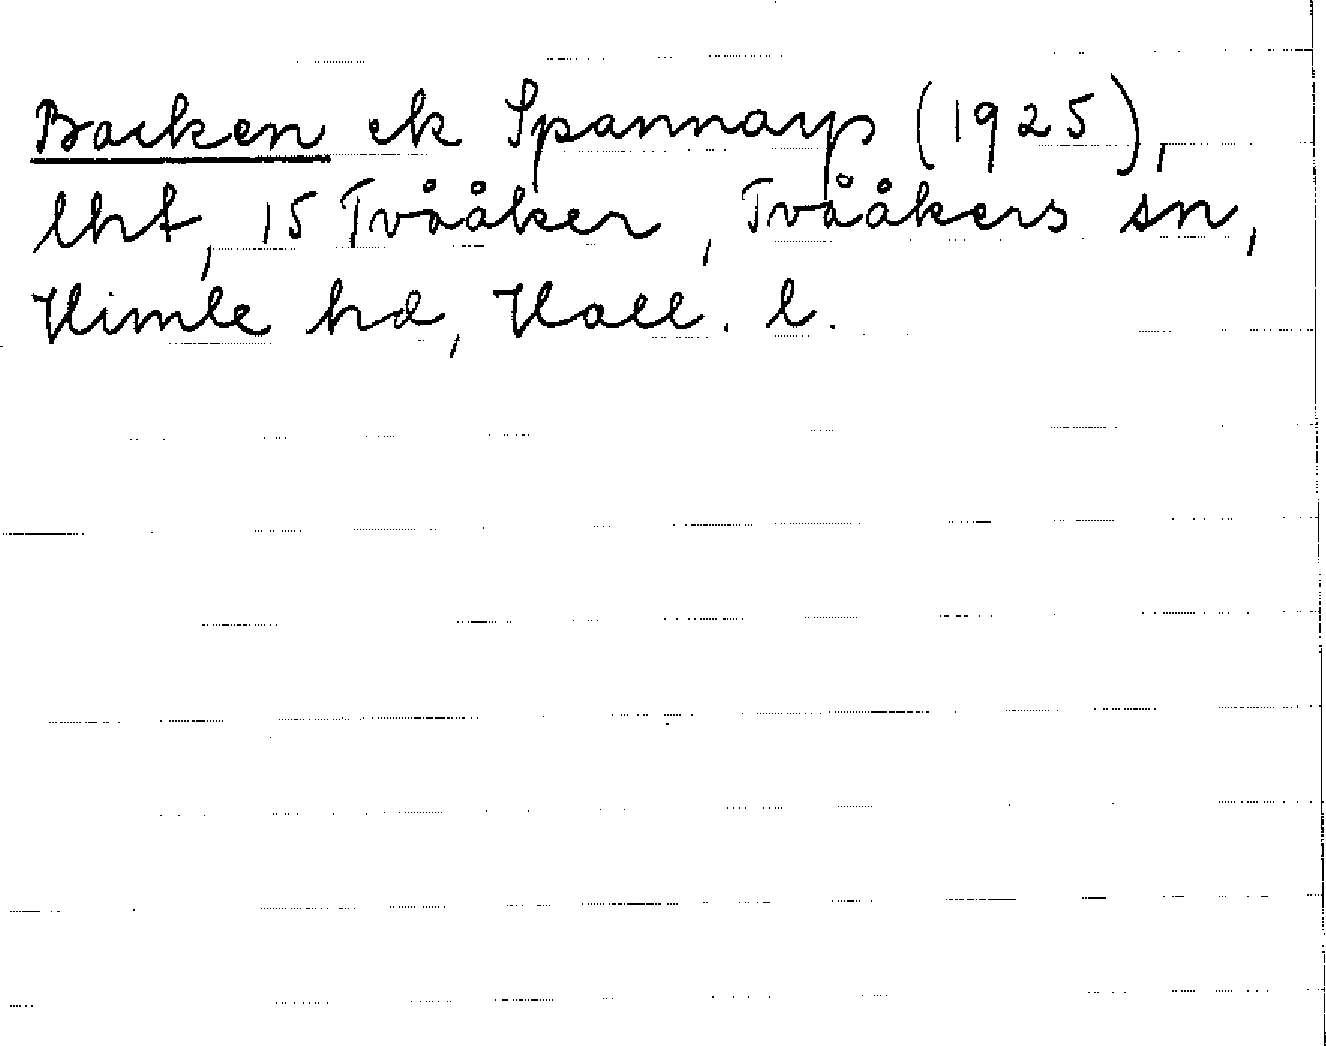 Backen ek Spannarp (1925),
lht, 15 Tvååker, Tvååkers sn,
Himle hd, Hall. l.